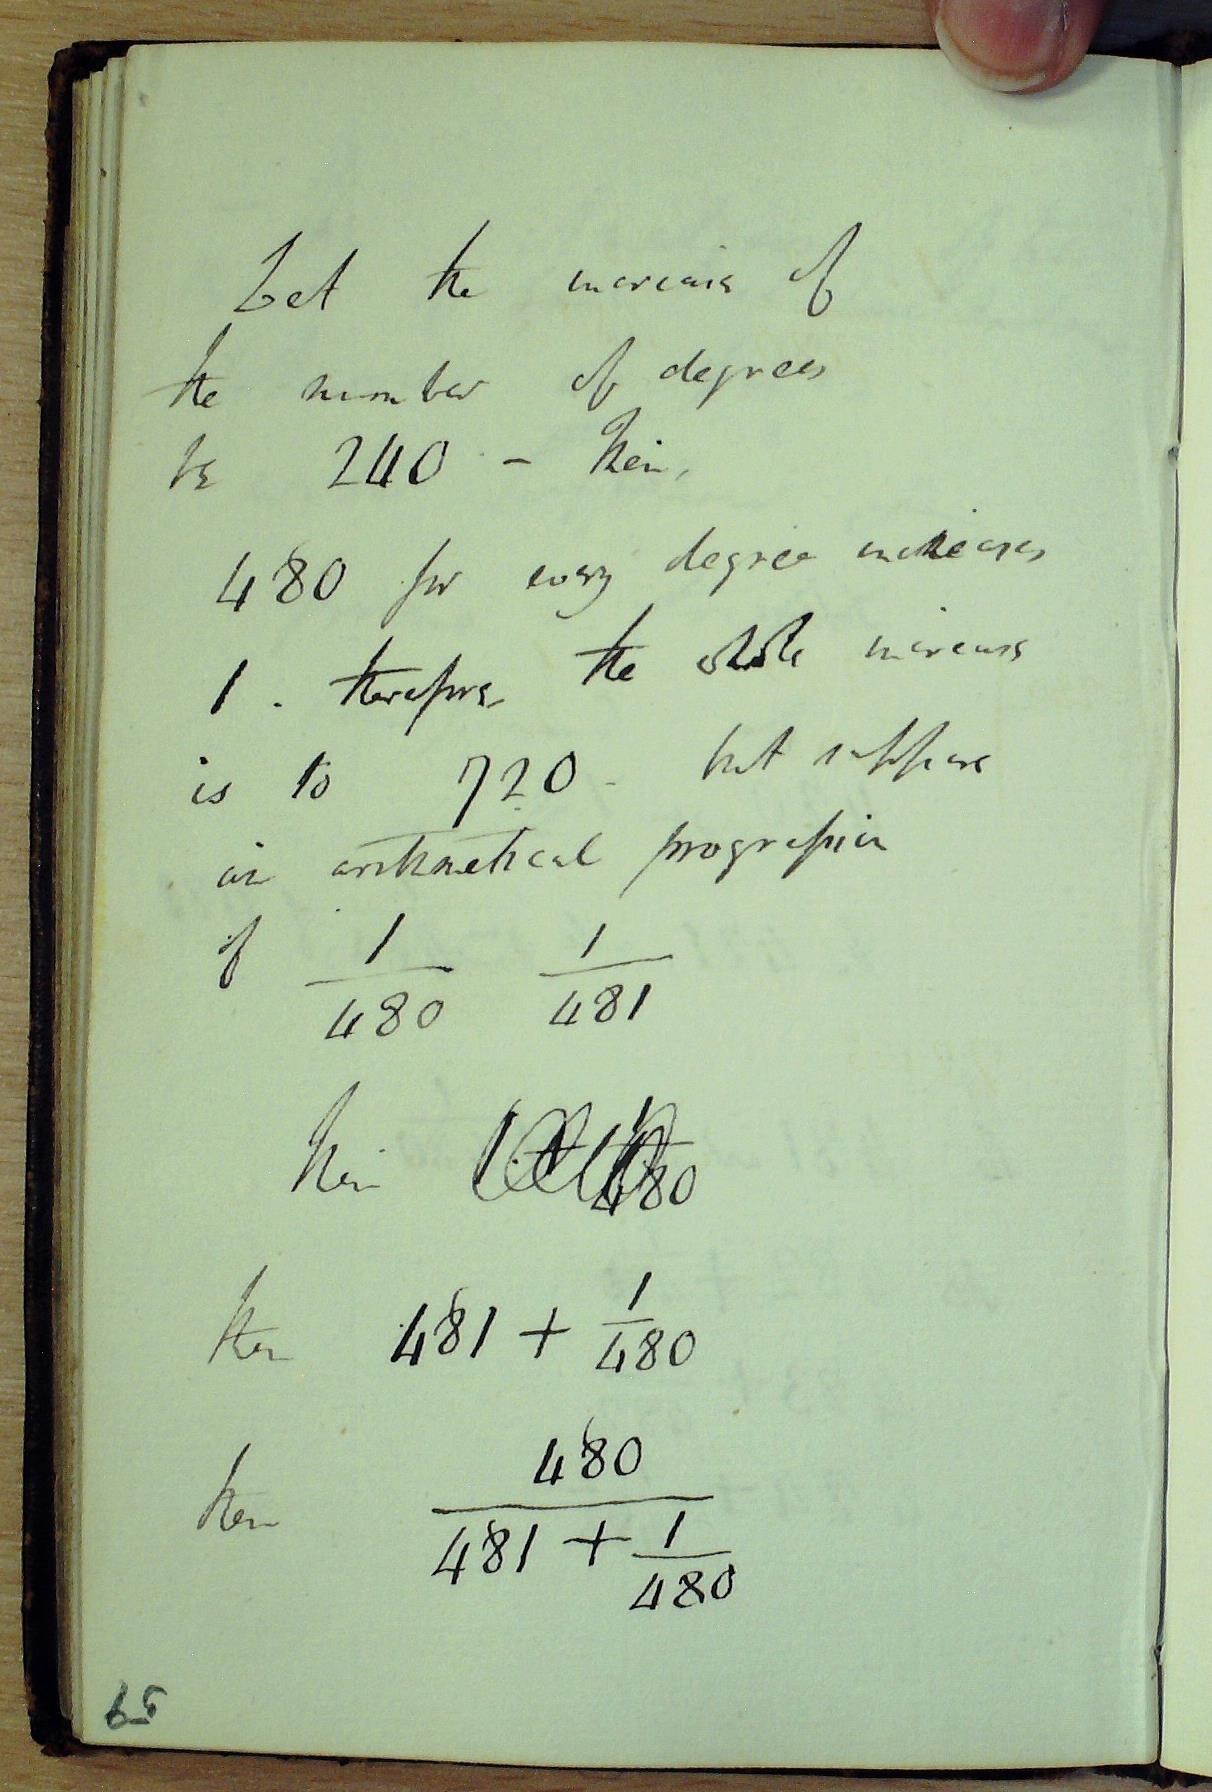 Let the increase of
the number of degrees
be 240 - then,
480 for every degree increases
1. therefore the whole increase
is to 720 - but suppose
in arithmetical progression
of 1/480 1/481
then 480
then 481 + 1/480
then 480/(481 + 1/480)
65